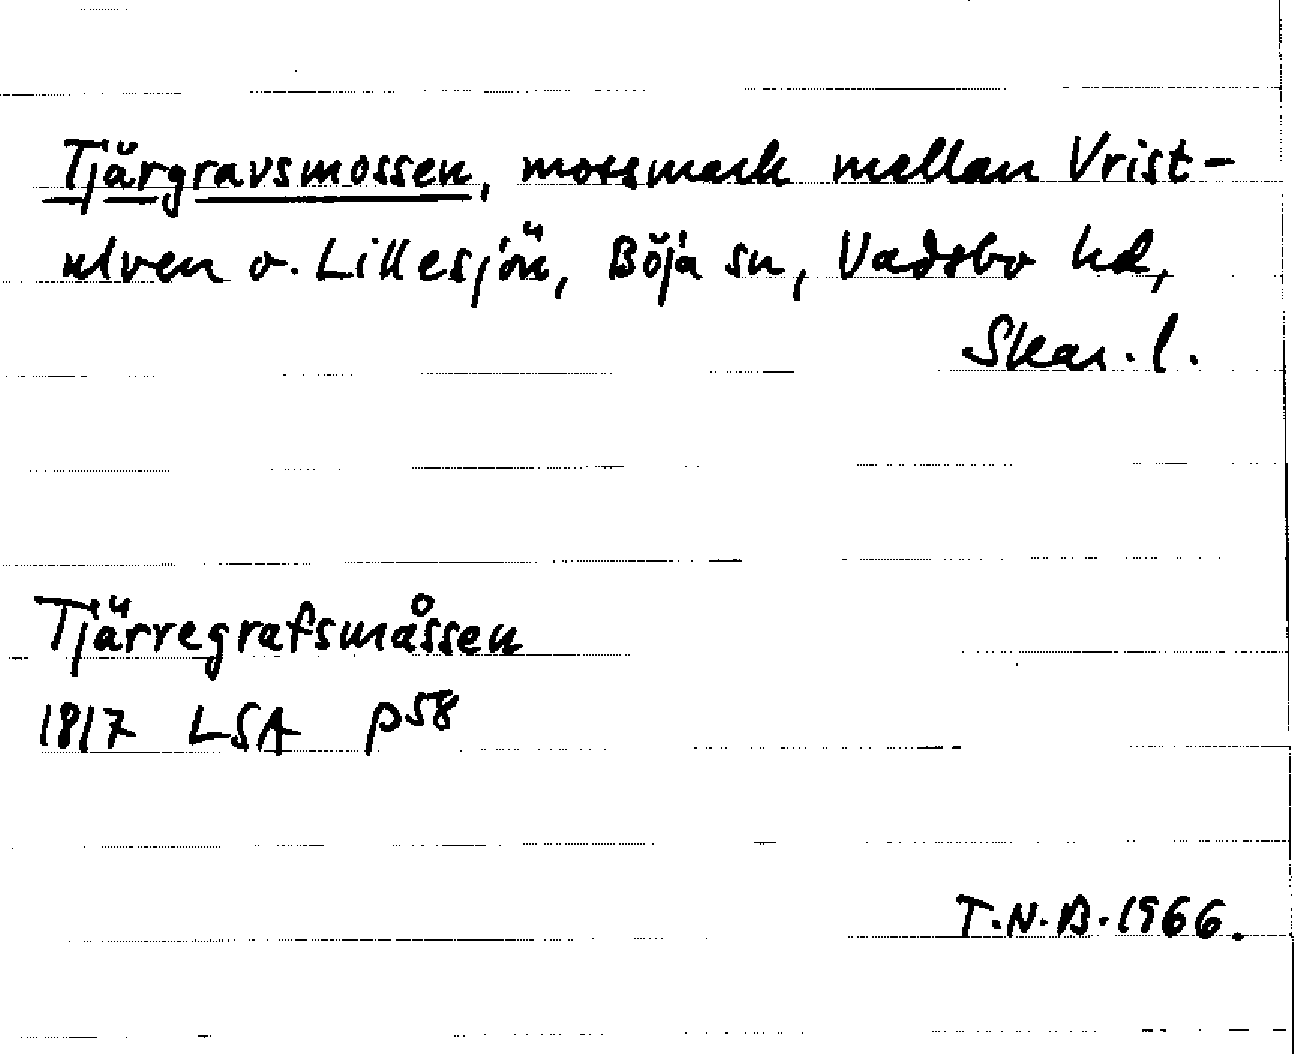 Tjärgravsmossen, mossmark mellan Vrist-
ulven o. Lillesjön, Böja sn, Vadsbo hd,
Skar. l.
Tjärregrafsmåssen
1817 LSA p58
T.N.B. 1966.